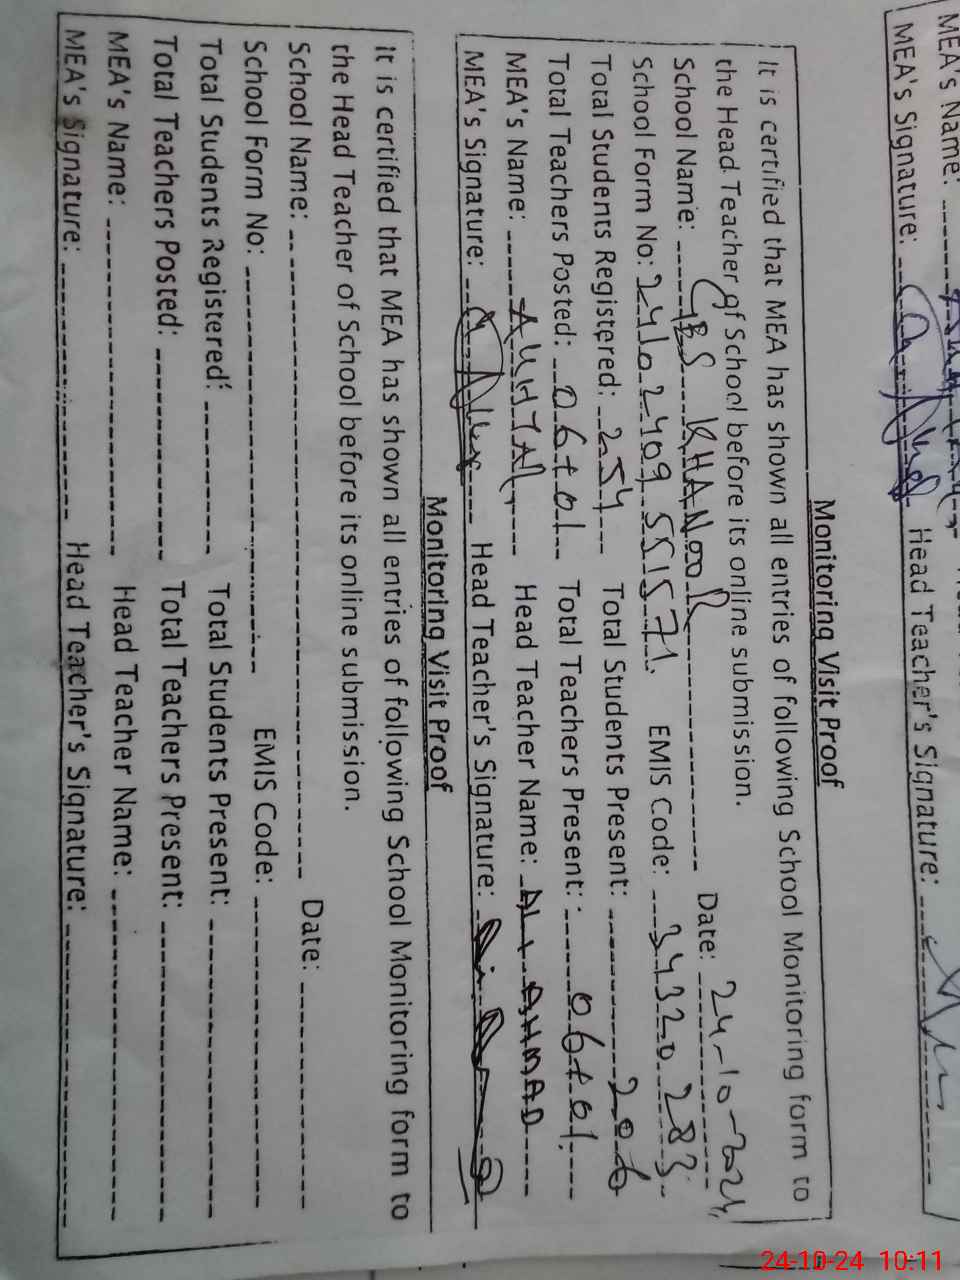 MEA's Name:
MEA's Signature: Head Teacher's Signature:
Monitoring Visit Proof
It is certified that MEA has shown all entries of following School Monitoring form to
the Head Teacher of School before its online submission.
School Name: GBS KHANOOR Date: 24-10-2024
School Form No: 2410 2409 551571. EMIS Code: 34320283
Total Students Registered: 254 Total Students Present: 206
Total Teachers Posted: 06+01 Total Teachers Present: 06+01
MEA's Name: Head Teacher Name: ALI AHMAD
MEA's Signature: Head Teacher's Signature:
Monitoring Visit Proof
It is certified that MEA has shown all entries of following School Monitoring form to
the Head Teacher of School before its online submission.
School Name: Date:
School Form No: EMIS Code:
Total Students Registered: Total Students Present:
Total Teachers Posted: Total Teachers Present:
MEA's Name: Head Teacher Name:
MEA's Signature: Head Teacher's Signature:
24-10-24 10:11